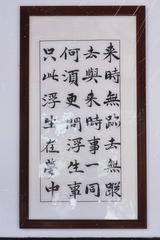 來時無跡去無蹤
去與來時事一同
何須更問浮生事
只此浮生在夢中